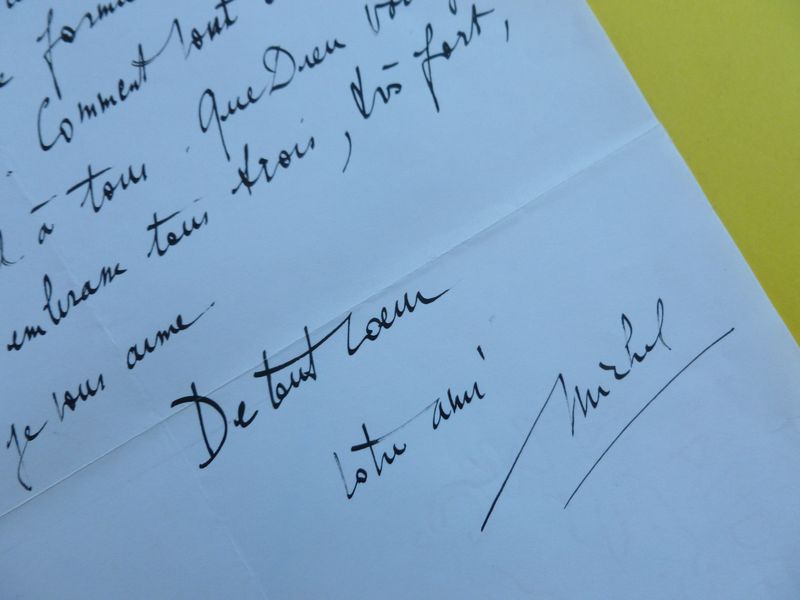 Comment sont
à tous. Que Dieu vous
embrasse tous trois, très fort,
je vous aime.
De tout coeur
votre ami
Michel